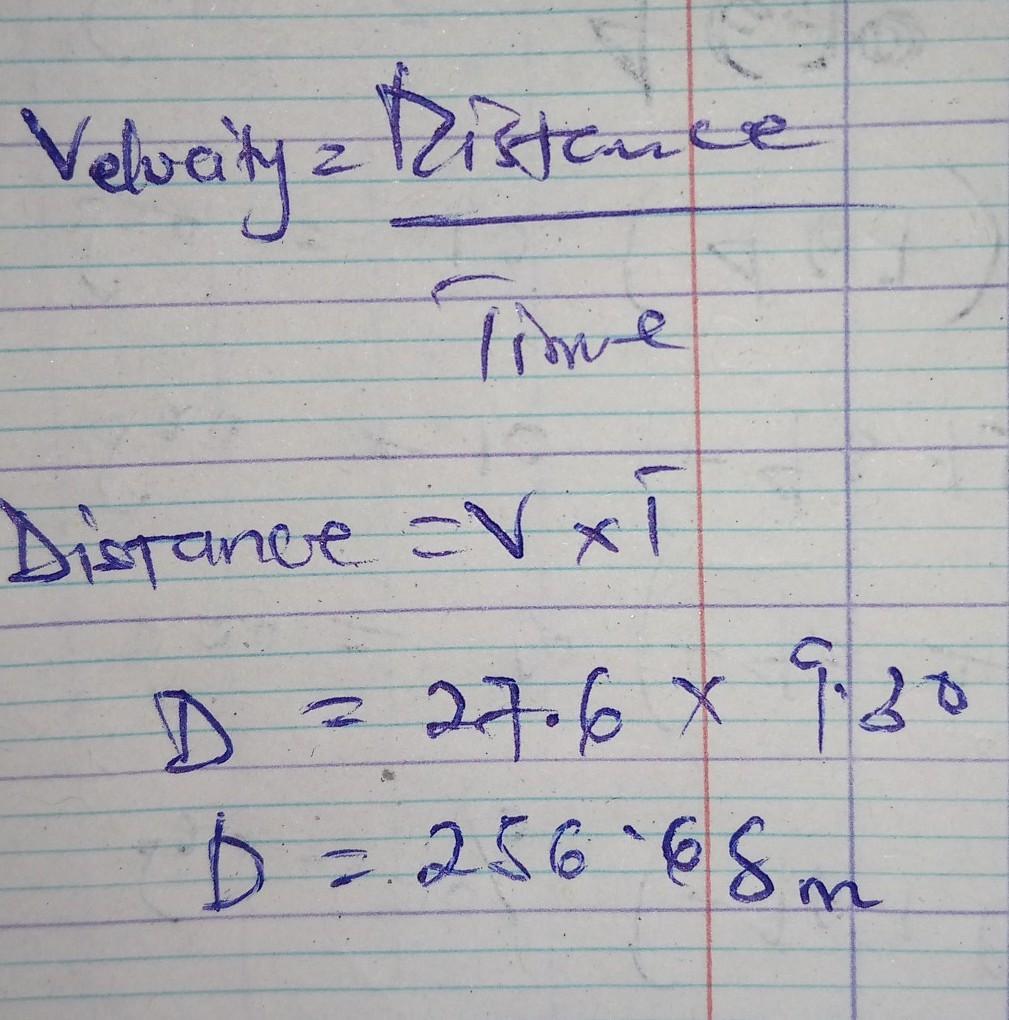 Velocity = Distance
Time
Distance = V x T
D = 27.6 x 9.30
D = 256.68m